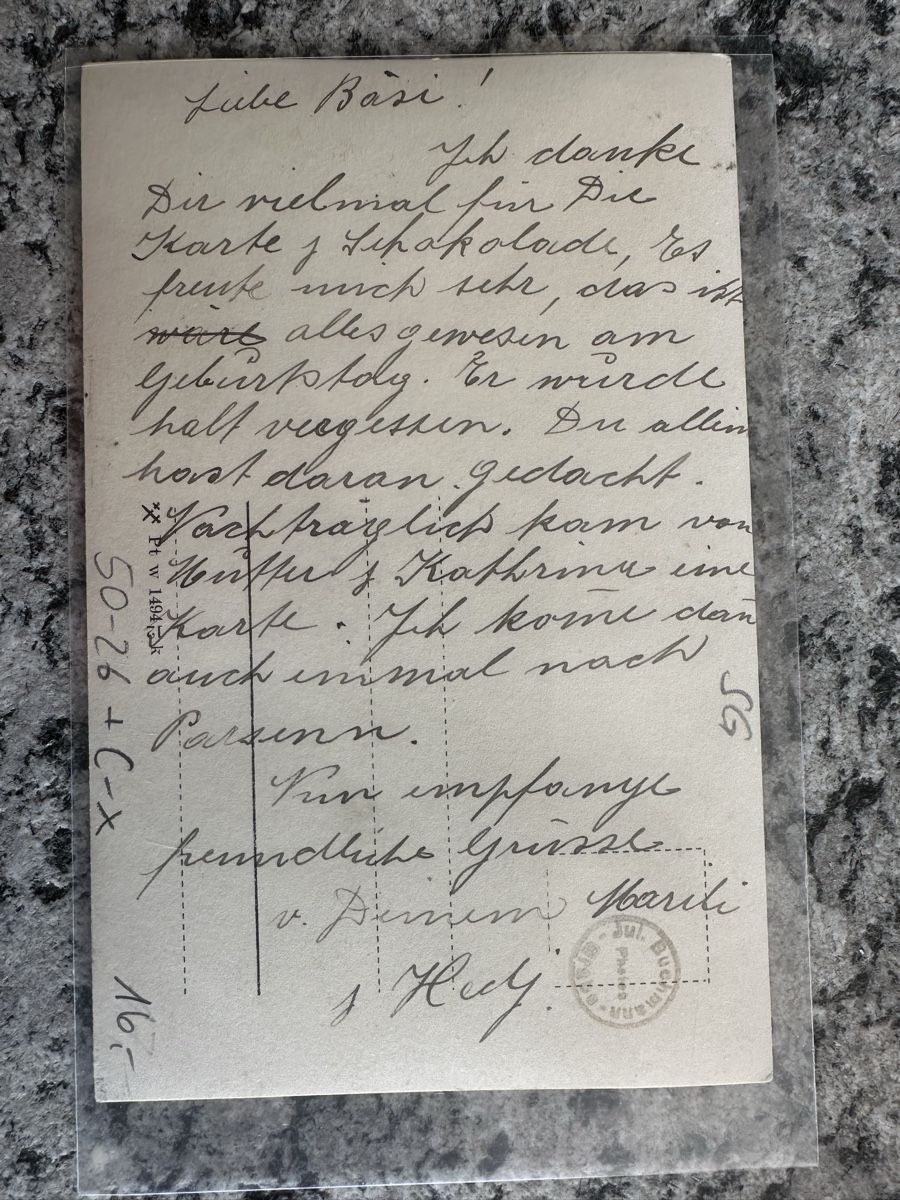 Liebe Bäsi!
Ich danke
Dir vielmal für Die
Karte & Schokolade, Es
freute mich sehr, das ist
wäre alles gewesen am
Gebŭrtstag. Er wŭrde
halt vergessen. Du allein
hast daran gedacht.
Nachträglich kam von
Mŭtter & Kathrina eine
Karte. Ich kom̄e dan̄
auch einmal nach
Parsenn.
Nun empfange
freundliche Grüsse
v. Deinem Mareili
& Hedj.
Jul. Buchmann
Photos
Pt w 1494
50-26 + C-X
SG
16.-